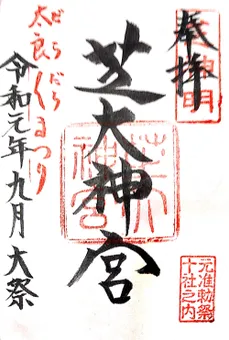 奉拝
元准勅祭
十社之内
芝大神宮
だらだら
太良〱まつり
令和元年九月大祭